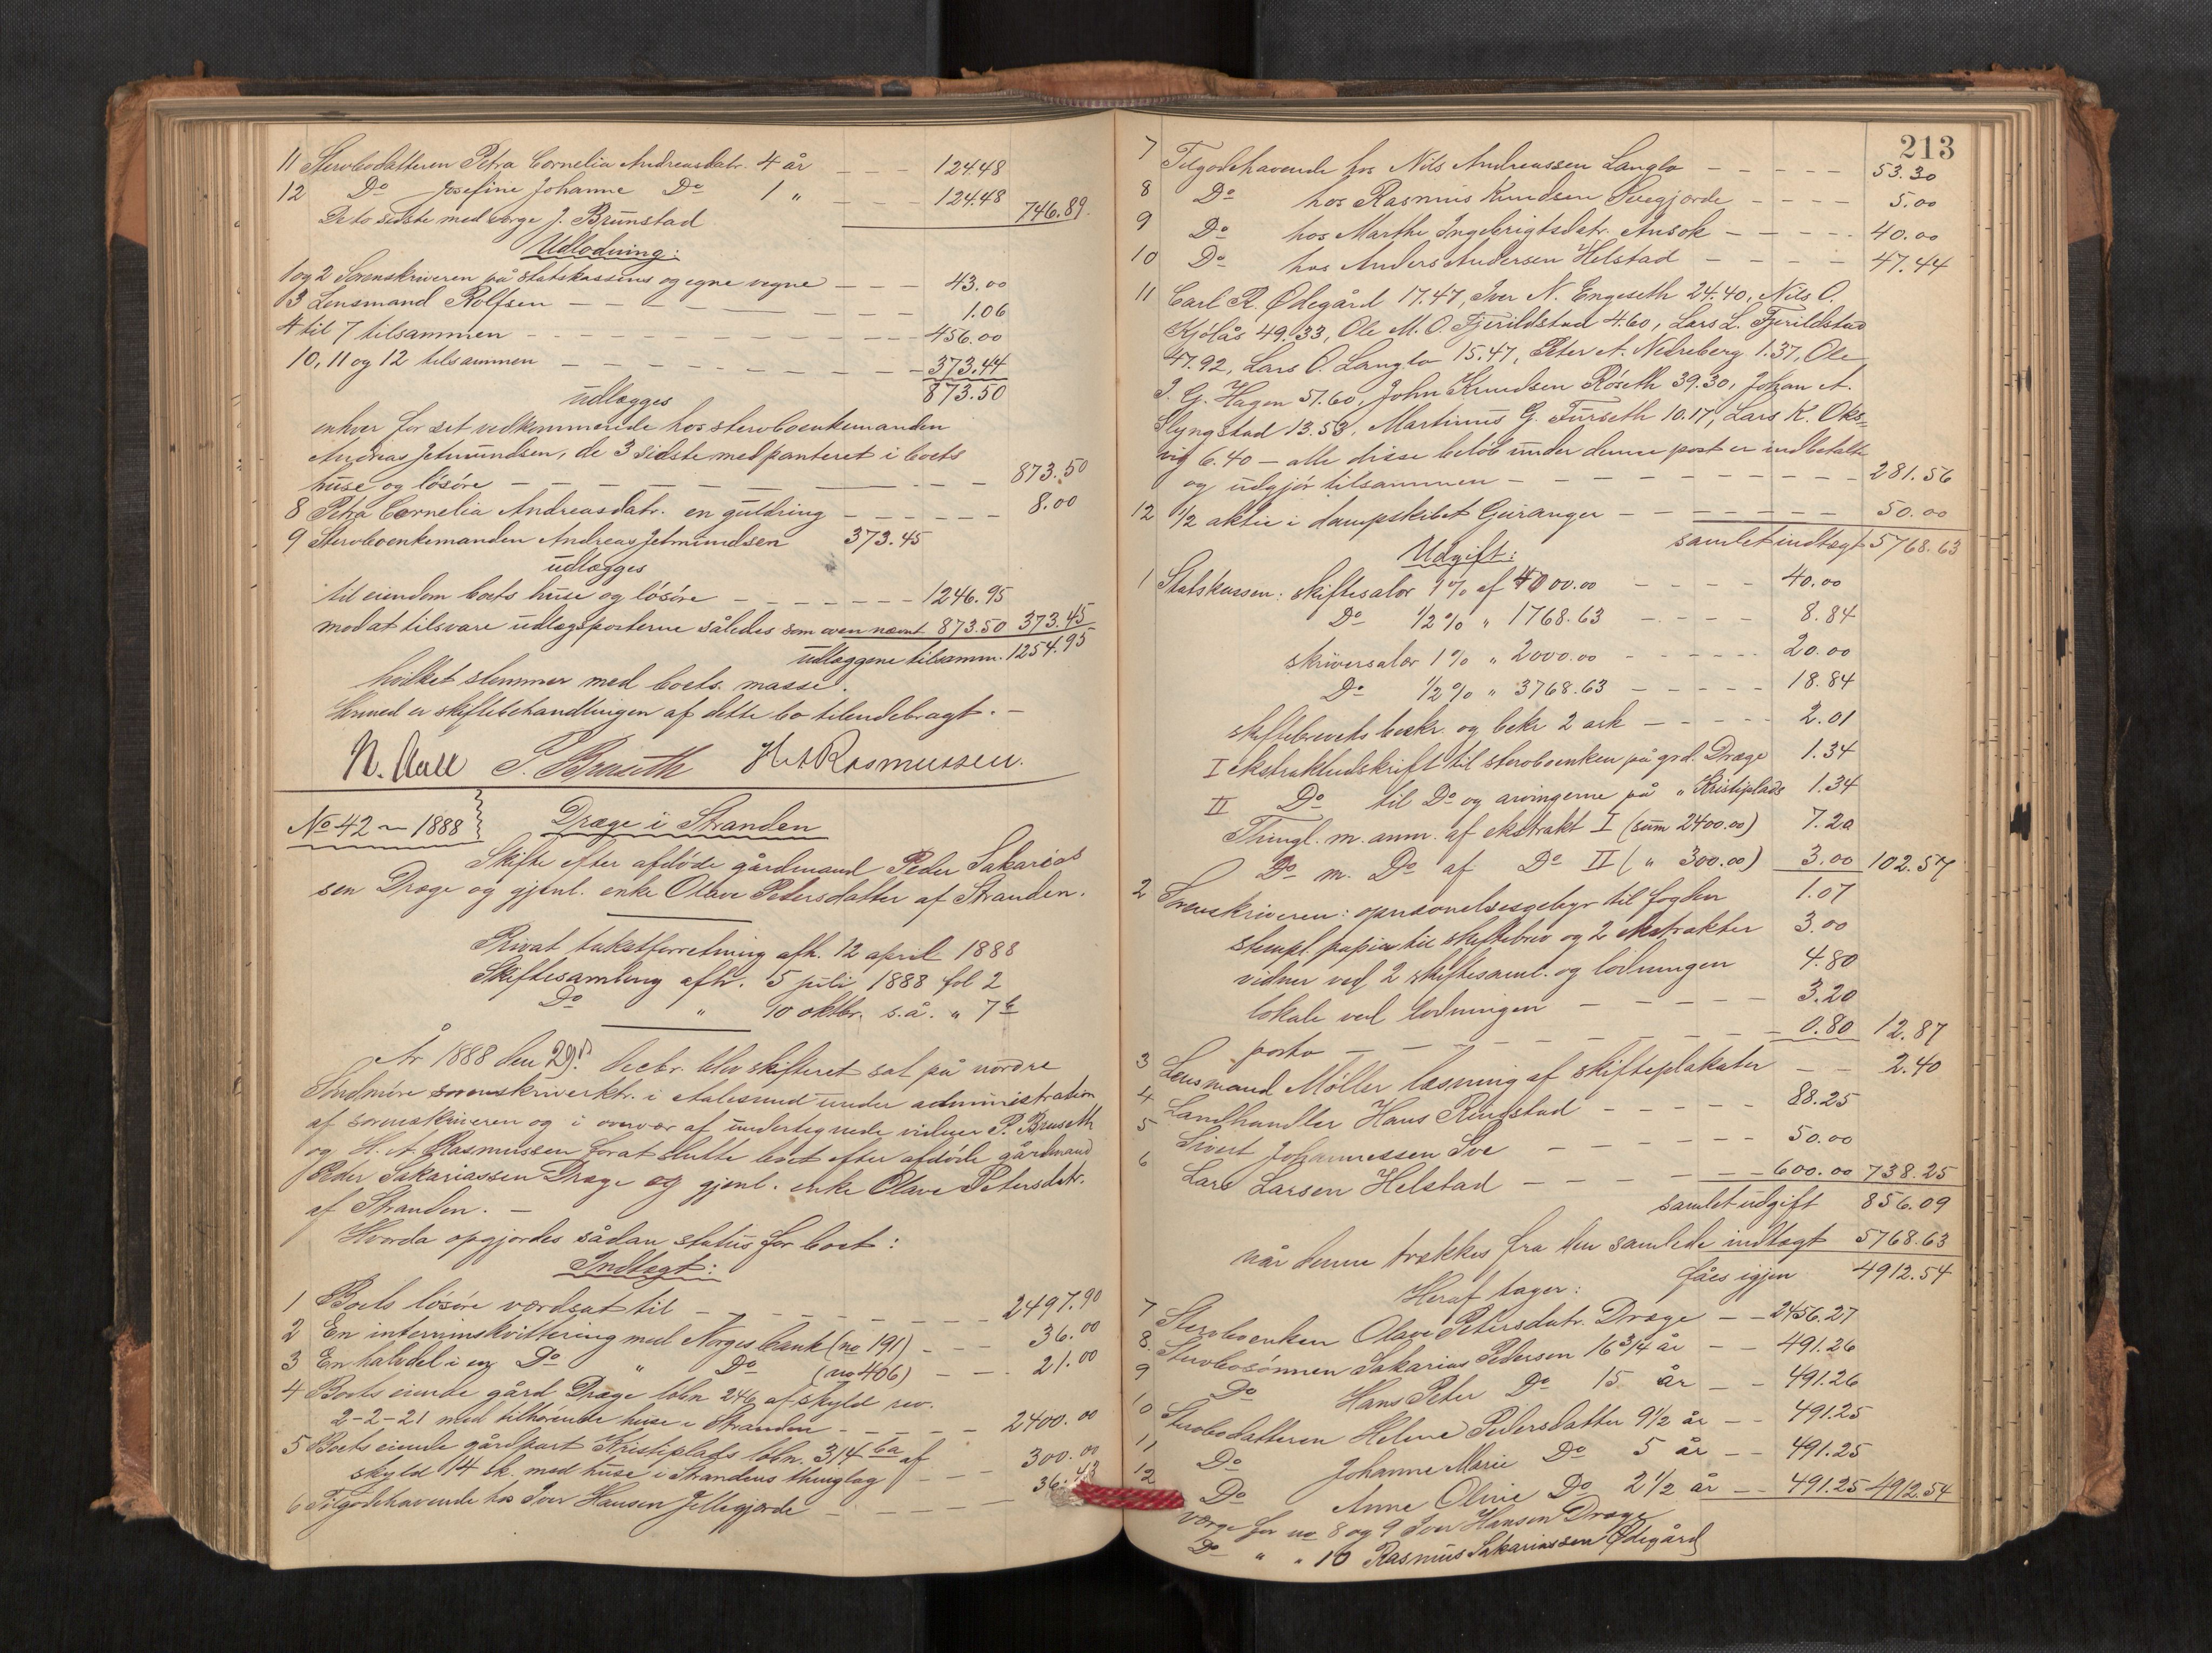 11 Stervbodatteren Petra Cornelia Andreasdatr. 4 år — — — 124.48
12 Do Josefine Johanne Do 1 " — — — 124.48 746.89.
De to sidste med verge J. Brunstad
Udlodning:
1 og 2 Sorenskriveren på statskassens og egne vegne — — — 43.00
3 Lensmand Rolfsen — — — 1.06
4 til 7 tilsammen — — — 456.00
10, 11 og 12 tilsammen — — — 373.44
udlægges 873.50
enhver for sit vedkommende hos stervboenkemanden
Andreas Jetmundsen, de 3 sidste med panteret i boets
huse og løsøre — — — 873.50
8 Petra Cornelia Andreasdatr. en guldring — — — 8.00
9 Stervboenkemanden Andreas Jetmundsen 373.45
udlægges
til eiendom boets huse og løsøre — — — 1246.95
mod at tilsvare udlægsposterne således som oven nævnt 873.50 373.45
udlæggene tilsamm. 1254.95
hvilket stemmer med boets masse.
Hermed er skiftebehandlingen af dette bo tilendebragt. —
N. Aall P. Bruseth H A Rasmussen.
No 42 — 1888 Dræge i Stranden
Skifte efter afdøde gårdmand Peder Sakarias
sen Dræge og gjenl. enke Olave Petersdatter af Stranden.
Privat takstforretning afh. 12 april 1888
Skiftesamling afh. 5 juli 1888 fol 2
Do " 10 oktbr. s.å. " 7 b
År 1888 den 29de decbr. blev skifteret sat på nordre
Søndmøre sorenskriverktr. i Aalesund under administration
af sorenskriveren og i overvær af undertegnede vidner P. Bruseth
og H. A. Rasmussen for at slutte boet efter afdøde gårdmand
Peder Sakariassen Dræge og gjenl. enke Olave Petersdatr.
af Stranden. —
Hvorda opgjordes sådan status for boet:
Indtægt:
1 Boets løsøre værdsat til — — — 2497.90
2 En interimskvittering med Norges bank (no 191) — — — 36.00
3 En halvdel i en Do " Do (no 406) — — — 21.00
4 Boets eiende gård Dræge lbn 246 af skyld rev.
2-2-21 med tilhørende huse i Stranden — — — 2400.00
5 Boets eiende gårdpart Kristiplads lbn. 314 ba af
skyld 14 sk. med huse i Strandens thinglag — — — 300.00
6 Tilgodehavende hos Iver Hansen Jellegjerde — — — 36.43
213
7 Tilgodehavende hos Nils Andreassen Langlo — — — 53.30
8 Do hos Rasmus Knudsen Svegjorde — — — 5.00
9 Do hos Marthe Ingebrigtsdatr. Ansok — — — 40.00
10 Do hos Anders Andersen Helstad — — — 47.44
11 Carl R. Ødegård 17.47, Iver N. Engeseth 24.40, Nils O.
Kjølås 49.33, Ole M. O. Fjerildstad 4.60, Lars L. Fjerildstad
47.92, Lars O. Langlo 15.47, Peter A. Nedreberg 1.37, Ole
J. G. Hagen 51.60, John Knudsen Røseth 39.30, Johan A.
Slyngstad 13.53, Martinus G. Furseth 10.17, Lars K. Oks=
vig 6.40 — alle disse beløb under denne post er indbetalt
og udgjør tilsammen — — — 281.56
12 1/2 aktie i dampskibet Geiranger — — — 50.00
samlet indtægt 5768.63
Udgift:
1 Statskassen: skiftesalær 1 % af 4000.00 — — — 40.00
Do 1/2 % " 1768.63 — — — 8.84
skriversalær 1 % " 2000.00 — — — 20.00
Do 1/2 % " 3768.63 — — — 18.84
skiftebrevets beskr. og bekr 2 ark — — — 2.01
I ekstraktudskrift til stervboenken på grd. Dræge 1.34
II Do til Do og arvingerne på " Kristiplads 1.34
Thingl. m. anm. af ekstrakt I (sum 2400.00) 7.20
Do m. Do af Do II ( " 300.00) 3.00 102.57
2 Sorenskriveren: opnævnelsesgebyr til fogden 1.07
stempl. papir til skiftebrev og 2 ekstrakter 3.00
vidner ved 2 skiftesaml. og lodningen 4.80
lokale ved lodningen — — — 3.20
porto — — — 0.80 12.87
3 Lensmand Møller læsning af skifteplakater — — 2.40
4 Landhandler Hans Ringstad — — — 88.25
5 Sivert Johannessen Sve — — — 50.00
6 Lars Larsen Helstad — — — 600.00 738.25
samlet udgift 856.09
når denne trækkes fra den samlede indtægt 5768.63
fåes igjen 4912.54
Heraf tager:
7 Stervboenken Olave Petersdatr. Dræge — — 2456.27
8. Stervbosønnen Sakarias Pedersen 16 3/4 år — — 491.26
9 Do Hans Peter Do 15 år — — 491.26
10 Stervbodatteren Helene Pedersdatter 9 1/2 år — — 491.25
11 Do Johanne Marie Do 5 år — — 491.25
12 Do Anne Oline Do 2 1/2 år — — 491.25 4912.54
Verge for no 8 og 9 Iver Hansen Dræge
Do " " 10 Rasmus Sakariassen Ødegård